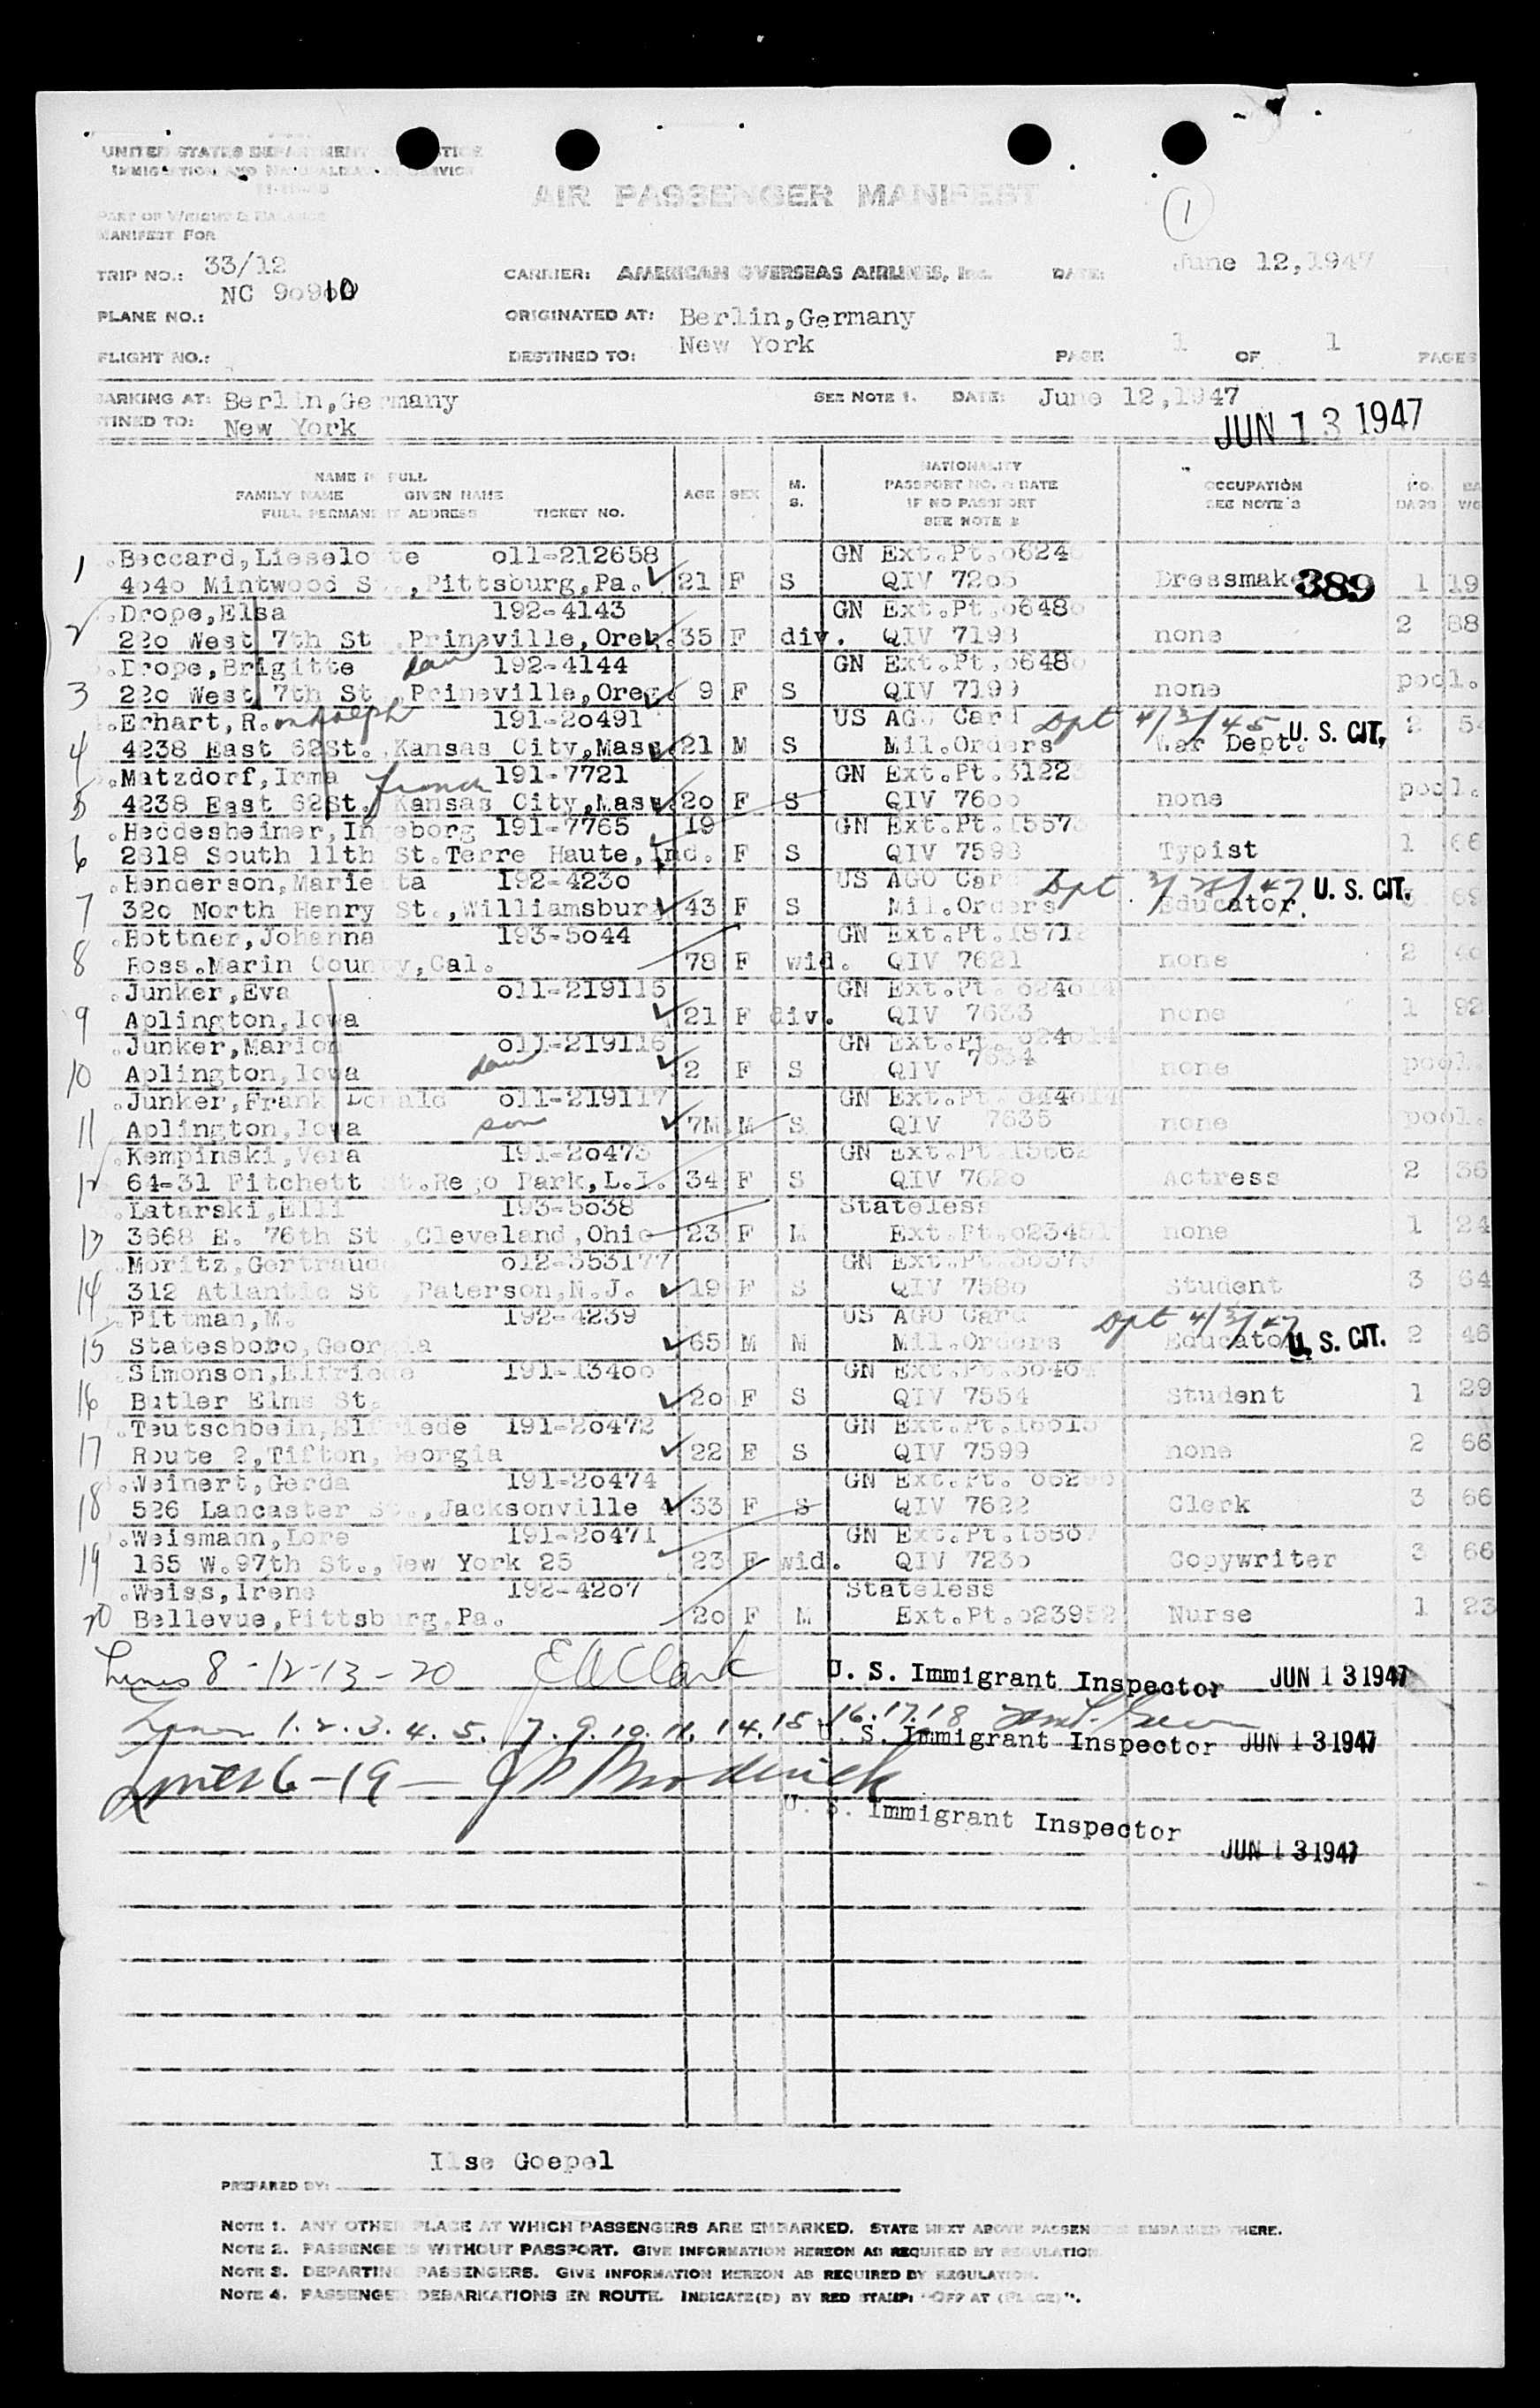 UNITED STATES DEPARTMENT OF JUSTICE
IMMIGRATION AND NATURALIZATION SERVICE
AIR PASSENGER MANIFEST
1
PART OF WEIGHT & BALANCE
MANIFEST FOR
TRIP NO.: 33/12 CARRIER: AMERICAN OVERSEAS AIRLINES, INC. DATE: June 12,1947
NC 90910
PLANE NO.: ORIGINATED AT: Berlin,Germany
FLIGHT NO.: DESTINED TO: New York PAGE 1 OF 1 PAGES
BARKING AT: Berlin,Germany SEE NOTE 1. DATE: June 12,1947
TINED TO: New York JUN 13 1947
NAME IN FULL
FAMILY NAME GIVEN NAME
FULL PERMANENT ADDRESS TICKET NO. AGE SEX M. S. NATIONALITY PASSPORT NO. & DATE IF NO PASSPORT SEE NOTE 2 OCCUPATION SEE NOTE 3 NO. BAGS
1 Beccard,Lieselotte o11-212658 GN Ext.Pt.o624
4o4o Mintwood St.,Pittsburg,Pa. 21 F S QIV 72o5 Dressmake 389 1 19
2 Drope,Elsa 192-4143 GN Ext.Pt.o648o
22o West 7th St.,Prineville,Oreg. 35 F div. QIV 7198 none 2 88
3 Drope,Brigitte dau 192-4144 GN Ext.Pt.o648o
22o West 7th St.,Prineville,Oreg. 9 F S QIV 7199 none pool.
4 Erhart,R. 191-2o491 US AGO Card Dpt 4/3/45 U. S. CIT.
4238 East 62St. Kansas City,Mass. 21 M S Mil.Orders War Dept. 2 54
5 Matzdorf,Irma 191-7721 GN Ext.Pt.3122
4238 East 62St. Kansas City,Mass. 2o F S QIV 76oo none pool.
6 Heddesheimer,Ingeborg 191-7765 19 GN Ext.Pt.1557
2818 South 11th St.Terre Haute,Ind. F S QIV 7598 Typist 1 66
7 Henderson,Marietta 192-423o US AGO Card Dpt U. S. CIT.
32o North Henry St.,Williamsburg 43 F S Mil.Orders Educator. 69
8 Bottner,Johanna 193-5o44 GN Ext.Pt.1871
Ross.Marin County,Cal. 78 F wid. QIV 7621 none 2 4o
9 Junker,Eva o11-219115 GN Ext.Pt. o24o14
Aplington,Iowa 21 F div. QIV 7633 none 1 92
10 Junker,Marion o11-219116 GN Ext.Pt. o24o14
Aplington,Iowa dau 2 F S QIV 7634 none pool.
11 Junker,Frank Donald o11-219117 GN Ext.Pt. o24o14
Aplington,Iowa son 7M. M S QIV 7635 none pool.
12 Kempinski,Vera 191-2o473 GN Ext.Pt.15662
64-31 Fitchett St.Rego Park,L.I. 34 F S QIV 762o Actress 2 36
13 Latarski,Elli 193-5o38 Stateless
3668 E. 76th St.,Cleveland,Ohio 23 F M Ext.Pt.o23451 none 1 24
14 Moritz,Gertraude o12-353177 GN Ext.Pt.
312 Atlantic St.,Paterson,N.J. 19 F S QIV 758o Student 3 64
15 Pittman,M. 192-4239 US AGO Card Dpt 4/3/47 U. S. CIT.
Statesboro,Georgia 65 M M Mil.Orders Educator 2 46
16 Simonson,Elfriede 191-134oo GN Ext.Pt.
Butler Elms St. 2o F S QIV 7554 Student 1 29
17 Teutschbein,Elfriede 191-2o472 GN Ext.Pt.
Route 2,Tifton,Georgia 22 F S QIV 7599 none 2 66
18 Weinert,Gerda 191-2o474 GN Ext.Pt.
526 Lancaster St.,Jacksonville 33 F S QIV 7622 Clerk 3 66
19 Weismann,Lore 191-2o471 GN Ext.Pt.
165 W.97th St.,New York 25 23 F wid. QIV 723o Copywriter 3 66
20 Weiss,Irene 192-42o7 Stateless
Bellevue,Pittsburg,Pa. 2o F M Ext.Pt.o23952 Nurse 1 23
Lines 8-12-13-20 E A Clark U. S. Immigrant Inspector JUN 13 1947
Lines 1.2.3.4.5. 7.9.10.11.14.15.16.17.18
U. S. Immigrant Inspector JUN 13 1947
Lines 6-19- J P Broderick
U. S. Immigrant Inspector
JUN 13 1947
Ilse Goepel
PREPARED BY:
NOTE 1. ANY OTHER PLACE AT WHICH PASSENGERS ARE EMBARKED. STATE NEXT ABOVE PASSENGERS EMBARKED THERE.
NOTE 2. PASSENGERS WITHOUT PASSPORT. GIVE INFORMATION HEREON AS REQUIRED BY REGULATION.
NOTE 3. DEPARTING PASSENGERS. GIVE INFORMATION HEREON AS REQUIRED BY REGULATION.
NOTE 4. PASSENGER DEBARKATIONS EN ROUTE. INDICATE(D) BY RED STAMP: "OFF AT (PLACE)".